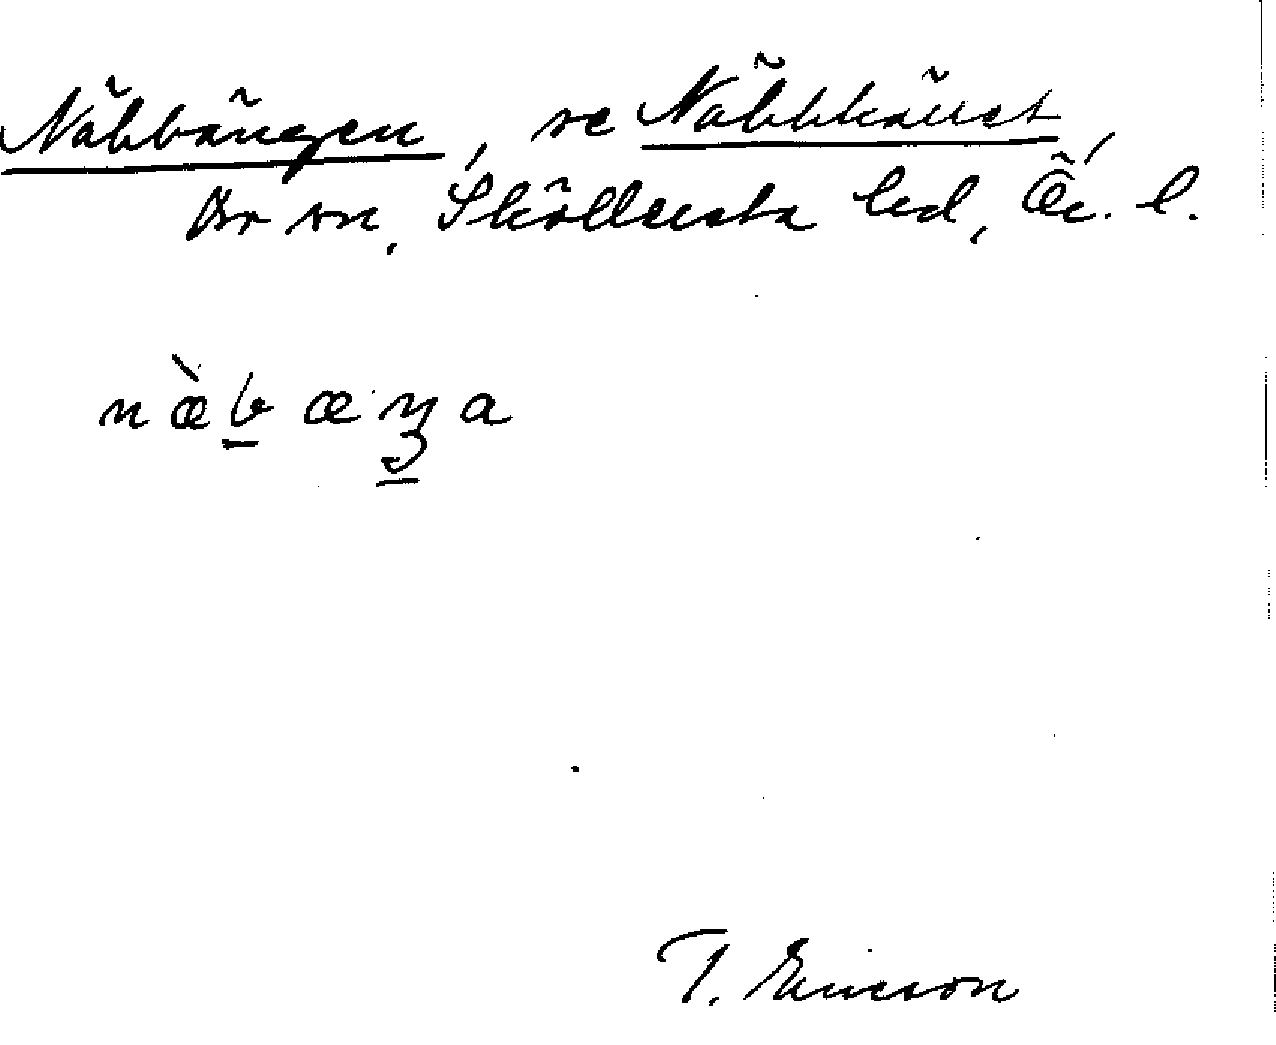 Näbbängen, se Näbbkärret,
Br sn, Sköllersta hd, Ör. l.
næ̀b̲ æŋ a
T. Ericson